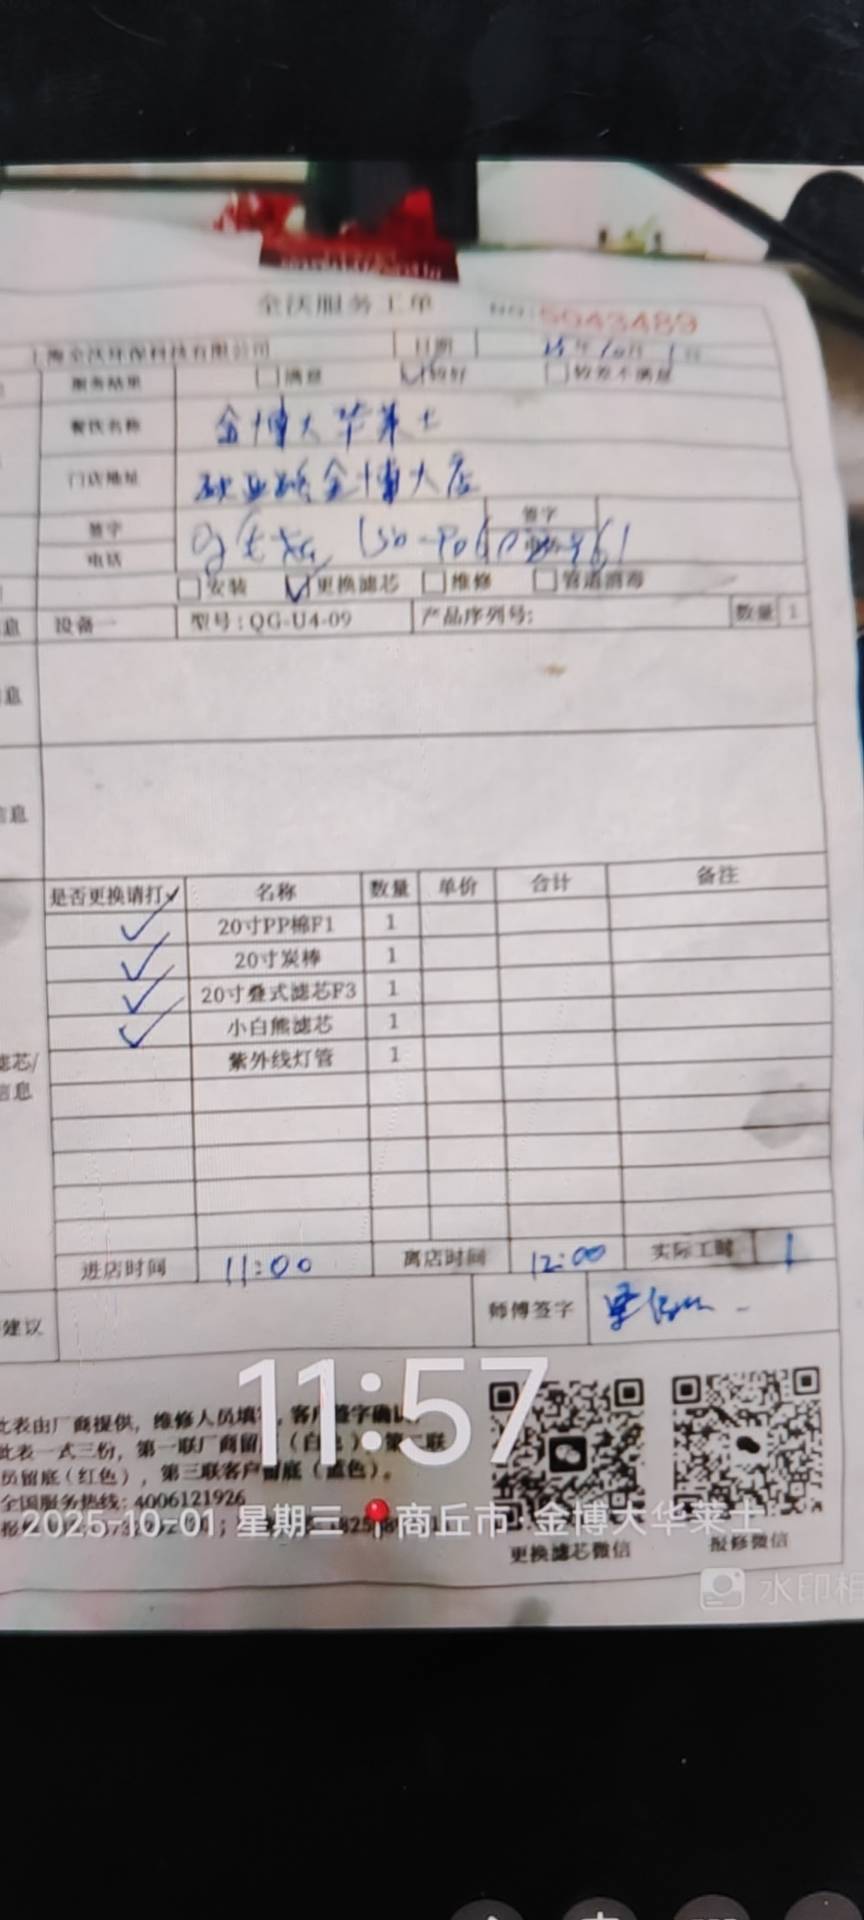 全沃服务工单 NO:5043489
上海全沃环保科技有限公司 日期 25年10月1日
服务结果 满意 较好 较差不满意
餐饮名称 金博大华莱士
门店地址 金博大店
签字 签字
电话
安装 更换滤芯 维修 管道消毒
息 设备一 型号:QG-U4-09 产品序列号: 数量 1
息
信息
是否更换请打✓ 名称 数量 单价 合计 备注
✓ 20寸PP棉F1 1
✓ 20寸炭棒 1
✓ 20寸叠式滤芯F3 1
✓ 小白熊滤芯 1
滤芯/ 紫外线灯管 1
信息
进店时间 11:00 离店时间 12:00 实际工时 1
建议 师傅签字
11:57
此表由厂商提供，维修人员填写，客户签字确认
此表一式三份，第一联厂商留 （白色） 第二联
员留底（红色），第三联客户留底（蓝色）。
全国服务热线：4006121926
2025-10-01 星期三 商丘市·金博大华莱士
更换滤芯微信 报修微信
水印相